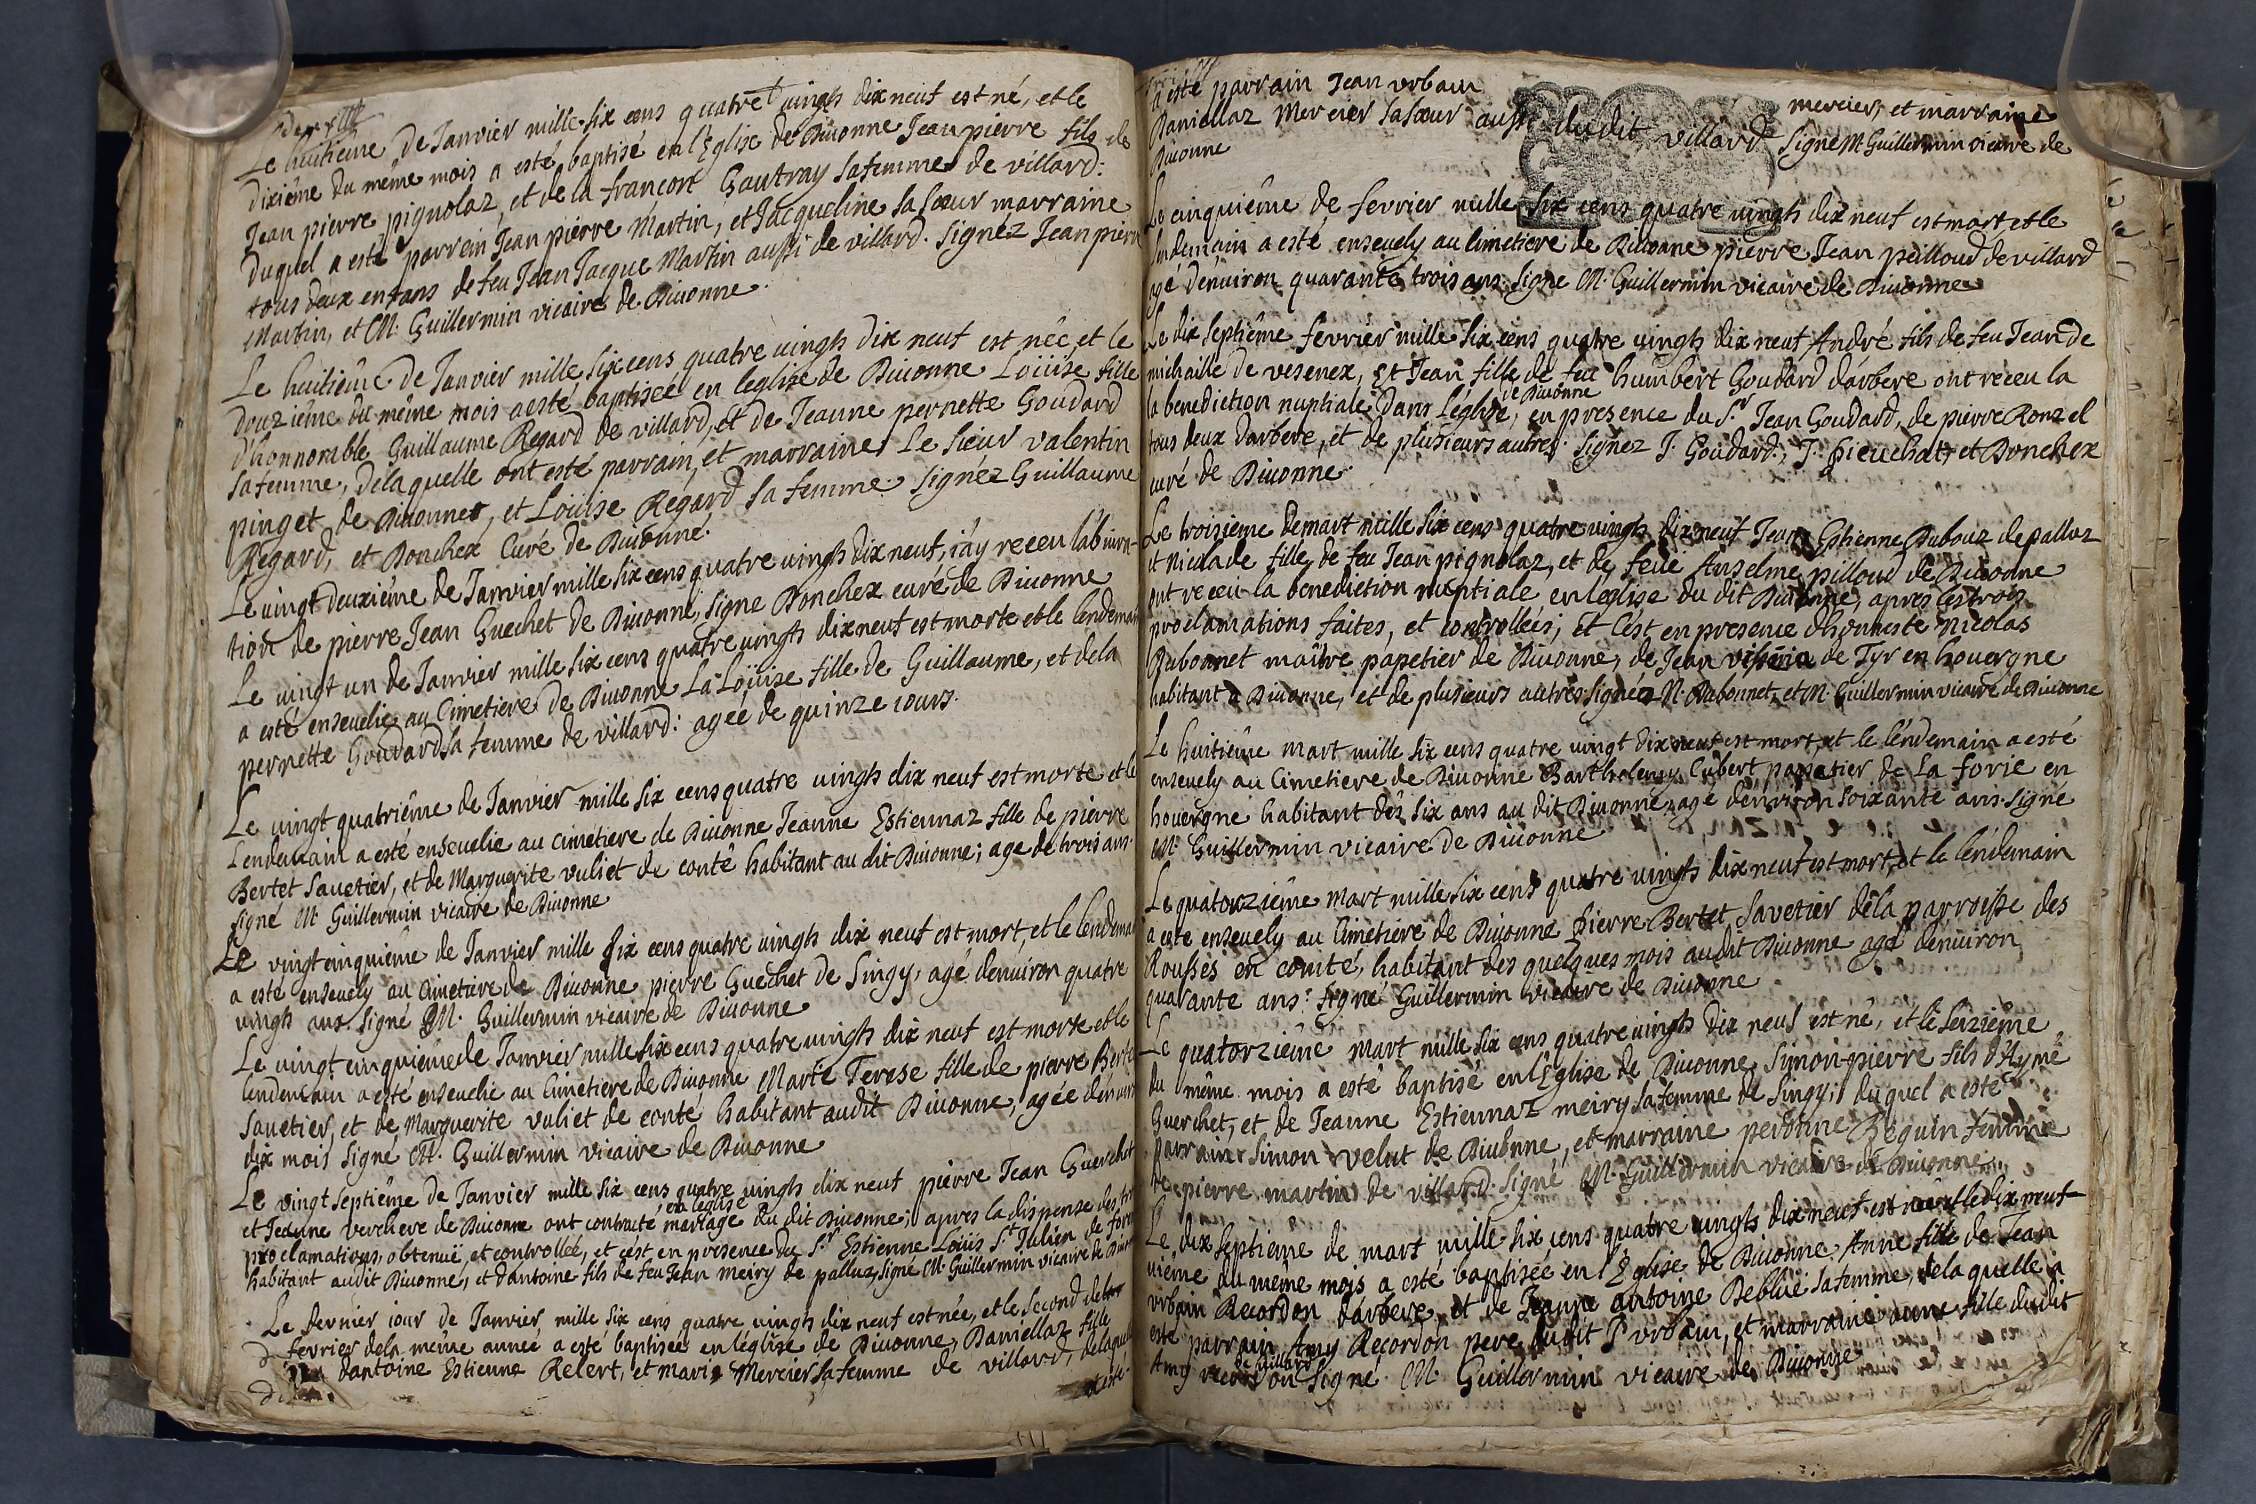 Le huitieme de Janvier mille six cens quatre vingts dix neuf est né, et le
dixiéme du même mois a esté baptisé en l'Eglise de Diuonne Jean pierre fils de
Jean pierre pignolaz, et de la francoise Gautray sa femme de villard:
duquel a esté parrein Jean pierre Martin, et Jacqueline sa sœur marraine
tous deux enfans de feu Jean Jacque Martin aussi de villard. Signéz Jean pierre
Martin, et M. Guillermin vicaire de Diuonne.
Le huitiême de Janvier mille six cens quatre vingts dix neuf est née, et le
douzième du même mois a esté baptisée en leglise de Diuonne Loüise fille
d'honnorable Guillaume Regard de villard, et de Jeanne pernette Goudard
sa femme, de laquelle ont esté parrain, et marraine Le sieur valentin
pinget de Diuonne, et Loüise Regard sa femme. Signéz Guillaume
Regard, et Bonchex Curé de Diuonne.
Le uingt deuxiéme de Janvier mille six cens quatre uingts dix neuf, i'ay receu l'abiura-
tion de pierre Jean Guechet de Diuonne, signe Bonchex curé de Diuonne
Le uingt un de Janvier mille six cens quatre uingts dix neuf est morte et le lendemain
a esté enseuelie au Cimetiere de Diuonne La Loüise fille de Guillaume, et de la
pernette Goudard sa femme de villard: agée de quinze iours.
Le uingt quatriême de Janvier mille six cens quatre uingts dix neuf est morte et le
Lendemain a esté enseuelie au cimetiere de Diuonne Jeanne Estiennaz fille de pierre
Bertet Sauetier, et de Marguerite vuliet de conté habitant au dit Diuonne; age de trois ans.
signé M. Guillermin vicaire de Diuonne
Le vingt cinquiême de Janvier mille six cens quatre uingts dix neuf est mort, et le lendemai
a esté enseuely au Cimetiere de Diuonne pierre Guechet de Singy, agé denuiron quatre
uingts ans. signé M. Guillermin vicaire de Diuonne
Le vingt cinquiéme de Janvier mille six cens quatre uingts dix neuf est morte et le
lendemain a esté enseuelie au Cimetiere de Diuonne Marie Terese fille de pierre Berte
sauetier, et de Marguerite vuliet de conté habitant audit Diuonne, agée denuir
dix mois signé M. Guillermin vicaire de Diuonne
Le vingt septiême de Janvier mille six cens quatre uingts dix neuf pierre Jean Guerchet
et Jeanne verchere de Diuonne ont contracté mariage en leglise du dit Diuonne; apres la dispense des
proclamations, obtenuë, et controllée, et cést en presence du Sr Estienne Loüis St Julien de
habitant audit Diuonne, et d'antoine fils de feu Jean meiry de palluz, signé M. Guillermin vicaire de
Le dernier iour de Janvier, mille six cens quatre uingts dix neuf est née, et le second de
fevrier dela même année a esté baptisée en léglise de Diuonne, Daniellaz fille
dantoine Estienne Relert, et marie Mercier sa femme de villard, delaque
a esté
a esté parrain Jean vrbain mercier, et marraine
Daniellaz Mercier sa sœur aussi dudit villard signé M. Guillermin vicaire de
Diuonne
Le cinquiême de fevrier mille six cens quatre uingts dix neuf est mort, et le
lendemain a esté enseuely au Cimetiere de Diuonne pierre Jean peilloud de villard
agé denuiron quarante trois ans. signe M. Guillermin vicaire de Diuonne
Le dix septiême fevrier mille six cens quatre uingts dix neuf André fils de feu Jean de
michaille de vesenex, Et Jean fille de feu humbert Goudard d'arbere ont receu la
la benediction nuptiale dans l'église de Diuonne, en presence du Sr Jean Goudard, de pierre Ronzel
tous deux darbere, et de plusieurs autres. signéz J. Goudard, J. et Bonchex
curé de Diuonne.
Le troisieme de mart mille six cens quatre uingts dix neuf Jean Estienne Dubouz de palluz
et nicolade fille de feu Jean pignolaz, et de feüe Anselme pilloud de Diuonne
ont receu la benediction nuptiale en léglise du dit Diuonne, apres les trois
proclamations faites, et controllées; Et Cést en presence dhonneste nicolas
Dubonnet maître papetier de Diuonne, de Jean de Tyr en houergne
habitant a Diuonne, et de plusieurs autres. signéz N. Dubonnet, et M. Guillermin vicaire de Diuonne
Le huitiême mart mille six cens quatre vingt dix neuf est mort, et le lendemain a esté
enseuely au Cimetiere de Diuonne Bartholemy Cubert papetier de La forie en
houergne habitant dês six ans au dit Diuonne, agé denviron soixante ans. signé
M. Guillermin vicaire de Diuonne
Le quatorziême mart mille six cens quatre uingts dix neuf est mort, et le lendemain
a esté enseuely au Cimetiere de Diuonne pierre Bertet Savetier dela parroisse des
Rousses en comté, habitant des quelques mois audit Diuonne agé denuiron
quarante ans: signé Guillermin vicaire de Diuonne
Le quatorziême mart mille six cens quatre uingts dix neuf est né, et le seiziême
du même mois a esté baptisé en l'Eglise de Diuonne, simon-pierre fils d'Aymé
Guerchet, et de Jeanne Estiennaz meiry sa femme de Singy; duquel a esté
parrain simon velut de Diuonne, et marraine pernonne Beguin femme
de pierre martin de villard. signé M. Guillermin vicaire de Diuonne
Le dix septieme de mart mille six cens quatre uingts dix neuf est née et le dix neuf-
vieme du même mois a esté baptisée en l'Eglise de Diuonne Anne fille de Jean
vrbain Recordon darbere, et de Jeanne antoine Deblüe sa femme, dela quelle a
esté parrain Amy Recordon pere dudit J. vrbain, et marraine anne fille dudit
Amy recordon de villard signé. M. Guillermin vicaire de Diuonne